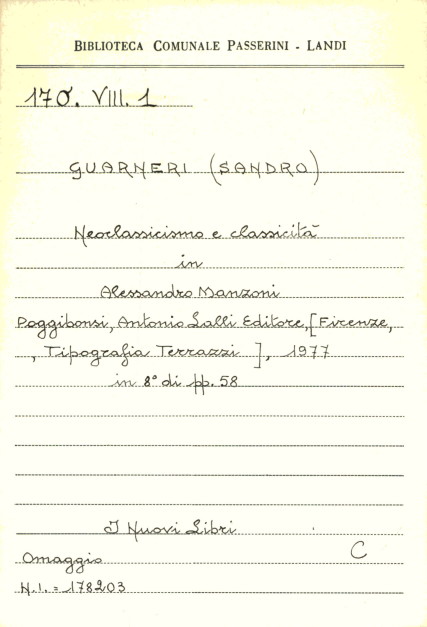 BIBLIOTECA COMUNALE PASSERINI - LANDI
170. VIII. 1
GUARNERI (SANDRO)
Neoclassicismo e classicità
in
Alessandro Manzoni
Poggibonsi, Antonio Lalli Editore, [Firenze,
, Tipografia Terrazzi ], 1977
in 8° di pp. 58
I Nuovi Libri
C
Omaggio
N.I. = 178203